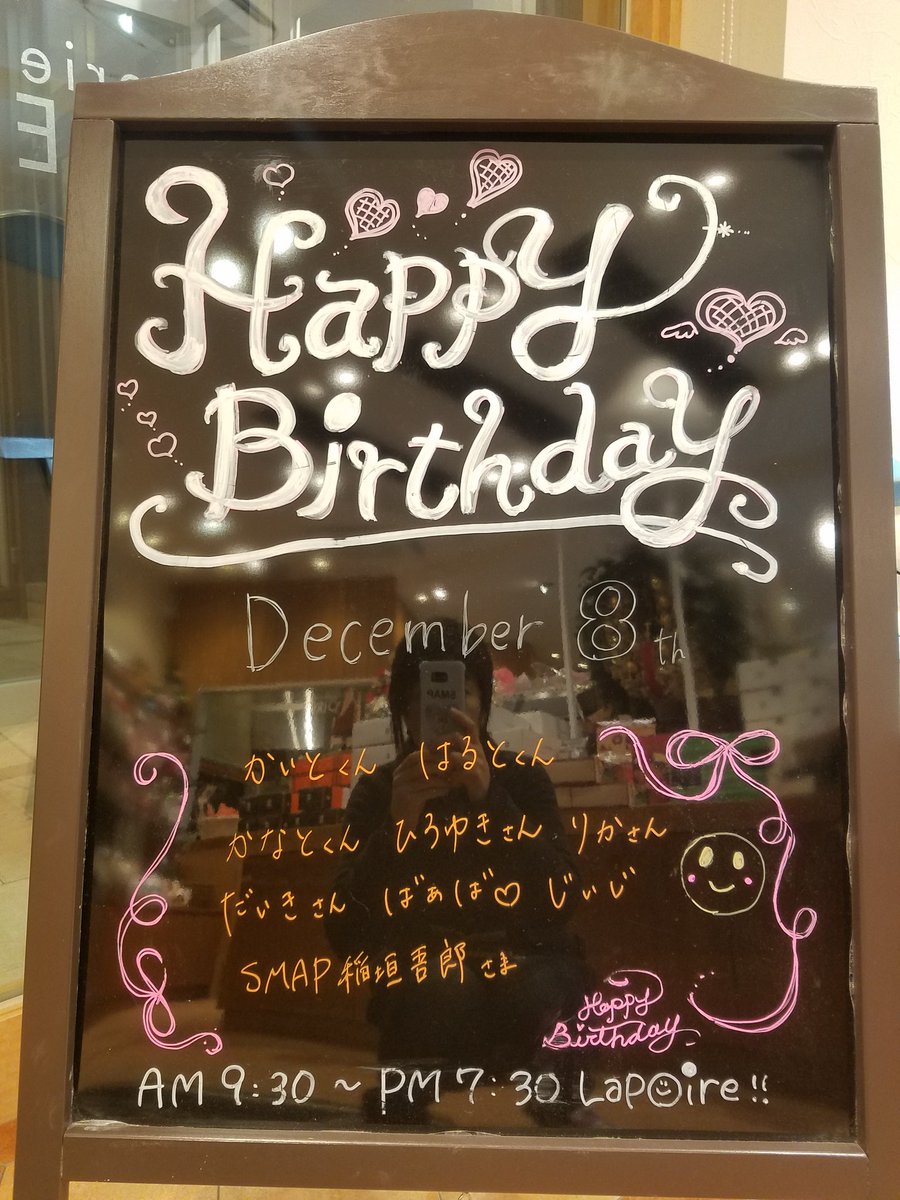 Happy
Birthday
December 8th
かいとくん はるとくん
かなとくん ひろゆきさん りかさん
だいきさん ばぁば♡ じぃじ
SMAP 稲垣吾郎さま
Happy
Birthday
AM 9:30 ~ PM 7:30 Lapoire!!